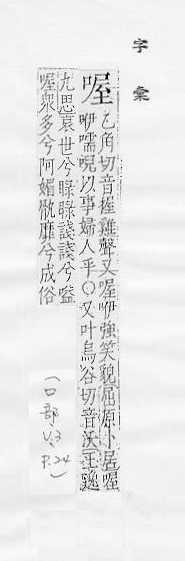 字彙
喔乙角切音握雞聲又喔咿強笑貌屈原卜居喔
咿嚅唲以事婦人乎○又叶烏谷切音沃王逸
九思哀世兮睩睩諓諓兮嗌
喔衆多兮阿媚骫靡兮成俗
(口部
V.3
P.24)